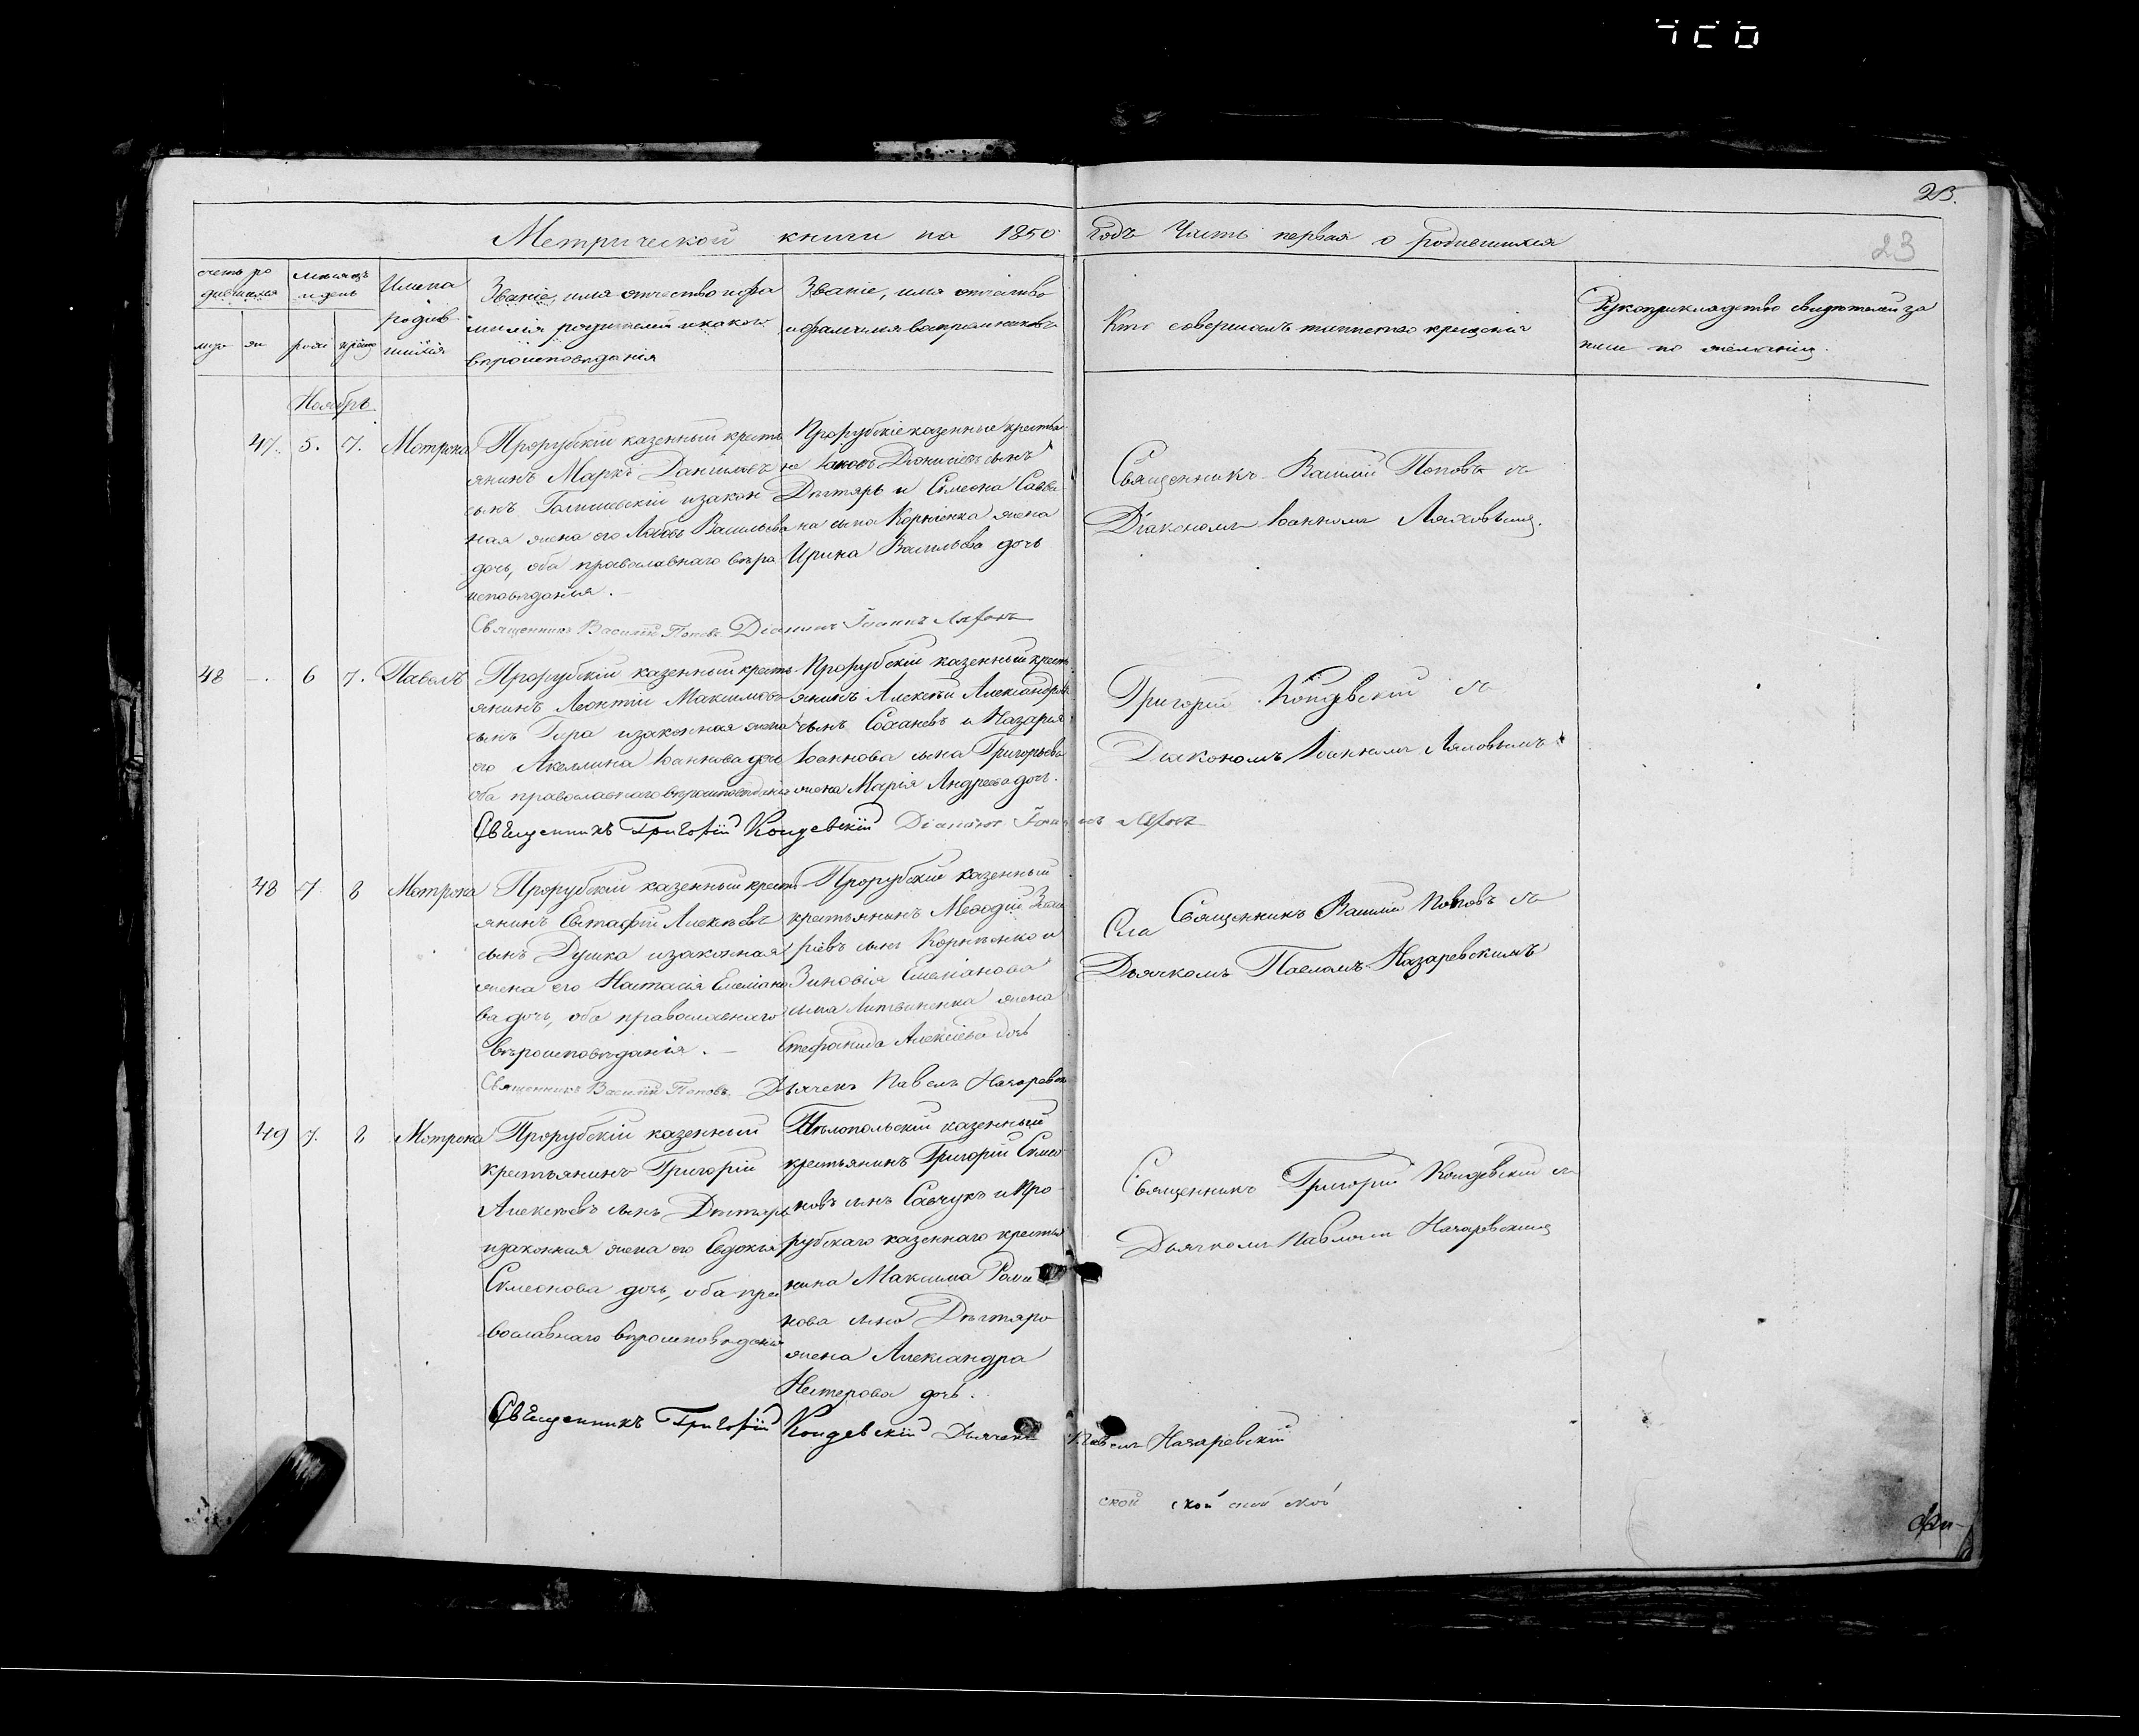 23.
Метрической книги на 1850 годъ Часть первая о родившихся
23
счетъ ро
дившихся
мѣсяцъ
и день
Имена
родив
шихся
Званіе, имя отчество и фа
милія родителей и какого
вѣроисповѣданія
Званіе, имя отчество
и фамилія воспріемниковъ
Кто совершалъ таинство крещенія
Рукоприкладство свидѣтелей за
писи по желанію.
Ноябрь
47. 5. 7. Мотрона
Прорубскій казенный кресть
янинъ Маркъ Даніиловъ
сынъ и закон
ная жена его Любовь Васильева
дочь, оба православнаго вѣро
исповѣданія.
Прорубскіе казенные крестья
не Іаковъ Діонисіевъ сынъ
Дѣгтярь и Симеона Савви
на сына Корніенка жена
Ирина Васильева дочь
Священникъ Василій Поповъ съ
Діакономъ Іоанномъ
Священникъ Василій Поповъ Діаконъ Іоаннъ
48 - 6 7. Павелъ
Прорубскій казенный кресть
янинъ Леонтій Максимовъ
сынъ Гира и законная жена
его Акилина Іоаннова дочь
оба православнаго вѣроисповѣданія
Прорубскій казенный кресть
янинъ Алексѣй Александровъ
сынъ и Назарія
Іоаннова сына Григорьева
жена Марія Андреева дочь.
Григорій Кондевскій съ
Діакономъ Іоанномъ
Священникъ Григорій Кондевскій Діаконъ Іоаннъ
48 7 8 Мотрона
Прорубскій казенный кресть
янинъ Евстафій Алексѣевъ
сынъ Душка и законная
жена его Настасія Емеліано
ва дочь, оба православнаго
вѣроисповѣданія.
Прорубскій казенный
крестьянинъ Меѳодій
сынъ Корніенко и
Зиновія Емеліанова
сына Литвиненка жена
Стефанида Алексіева дочь
Священникъ Василій Поповъ съ
Дьячкомъ Павломъ Назаревскимъ
Священникъ Василій Поповъ Дьячекъ Павелъ Назаревскій
49 7. 8 Мотрона
Прорубскій казенный
крестьянинъ Григорій
Алексѣевъ сынъ Дѣгтярь
и законная жена его Евдокія
Симеонова дочь, оба пра
вославнаго вѣроисповѣданія
казенный
крестьянинъ Григорій Симео
новъ сынъ Савчукъ и Про
рубскаго казеннаго крестья
нина Максима
нова сына Дѣгтяра
жена Александра
Нестерова дочь.
Священникъ Григорій Кондевскій съ
Дьячкомъ Павломъ Назаревскимъ
Священникъ Григорій Кондевскій Дьячекъ Павелъ Назаревскій
ской ской ской ской